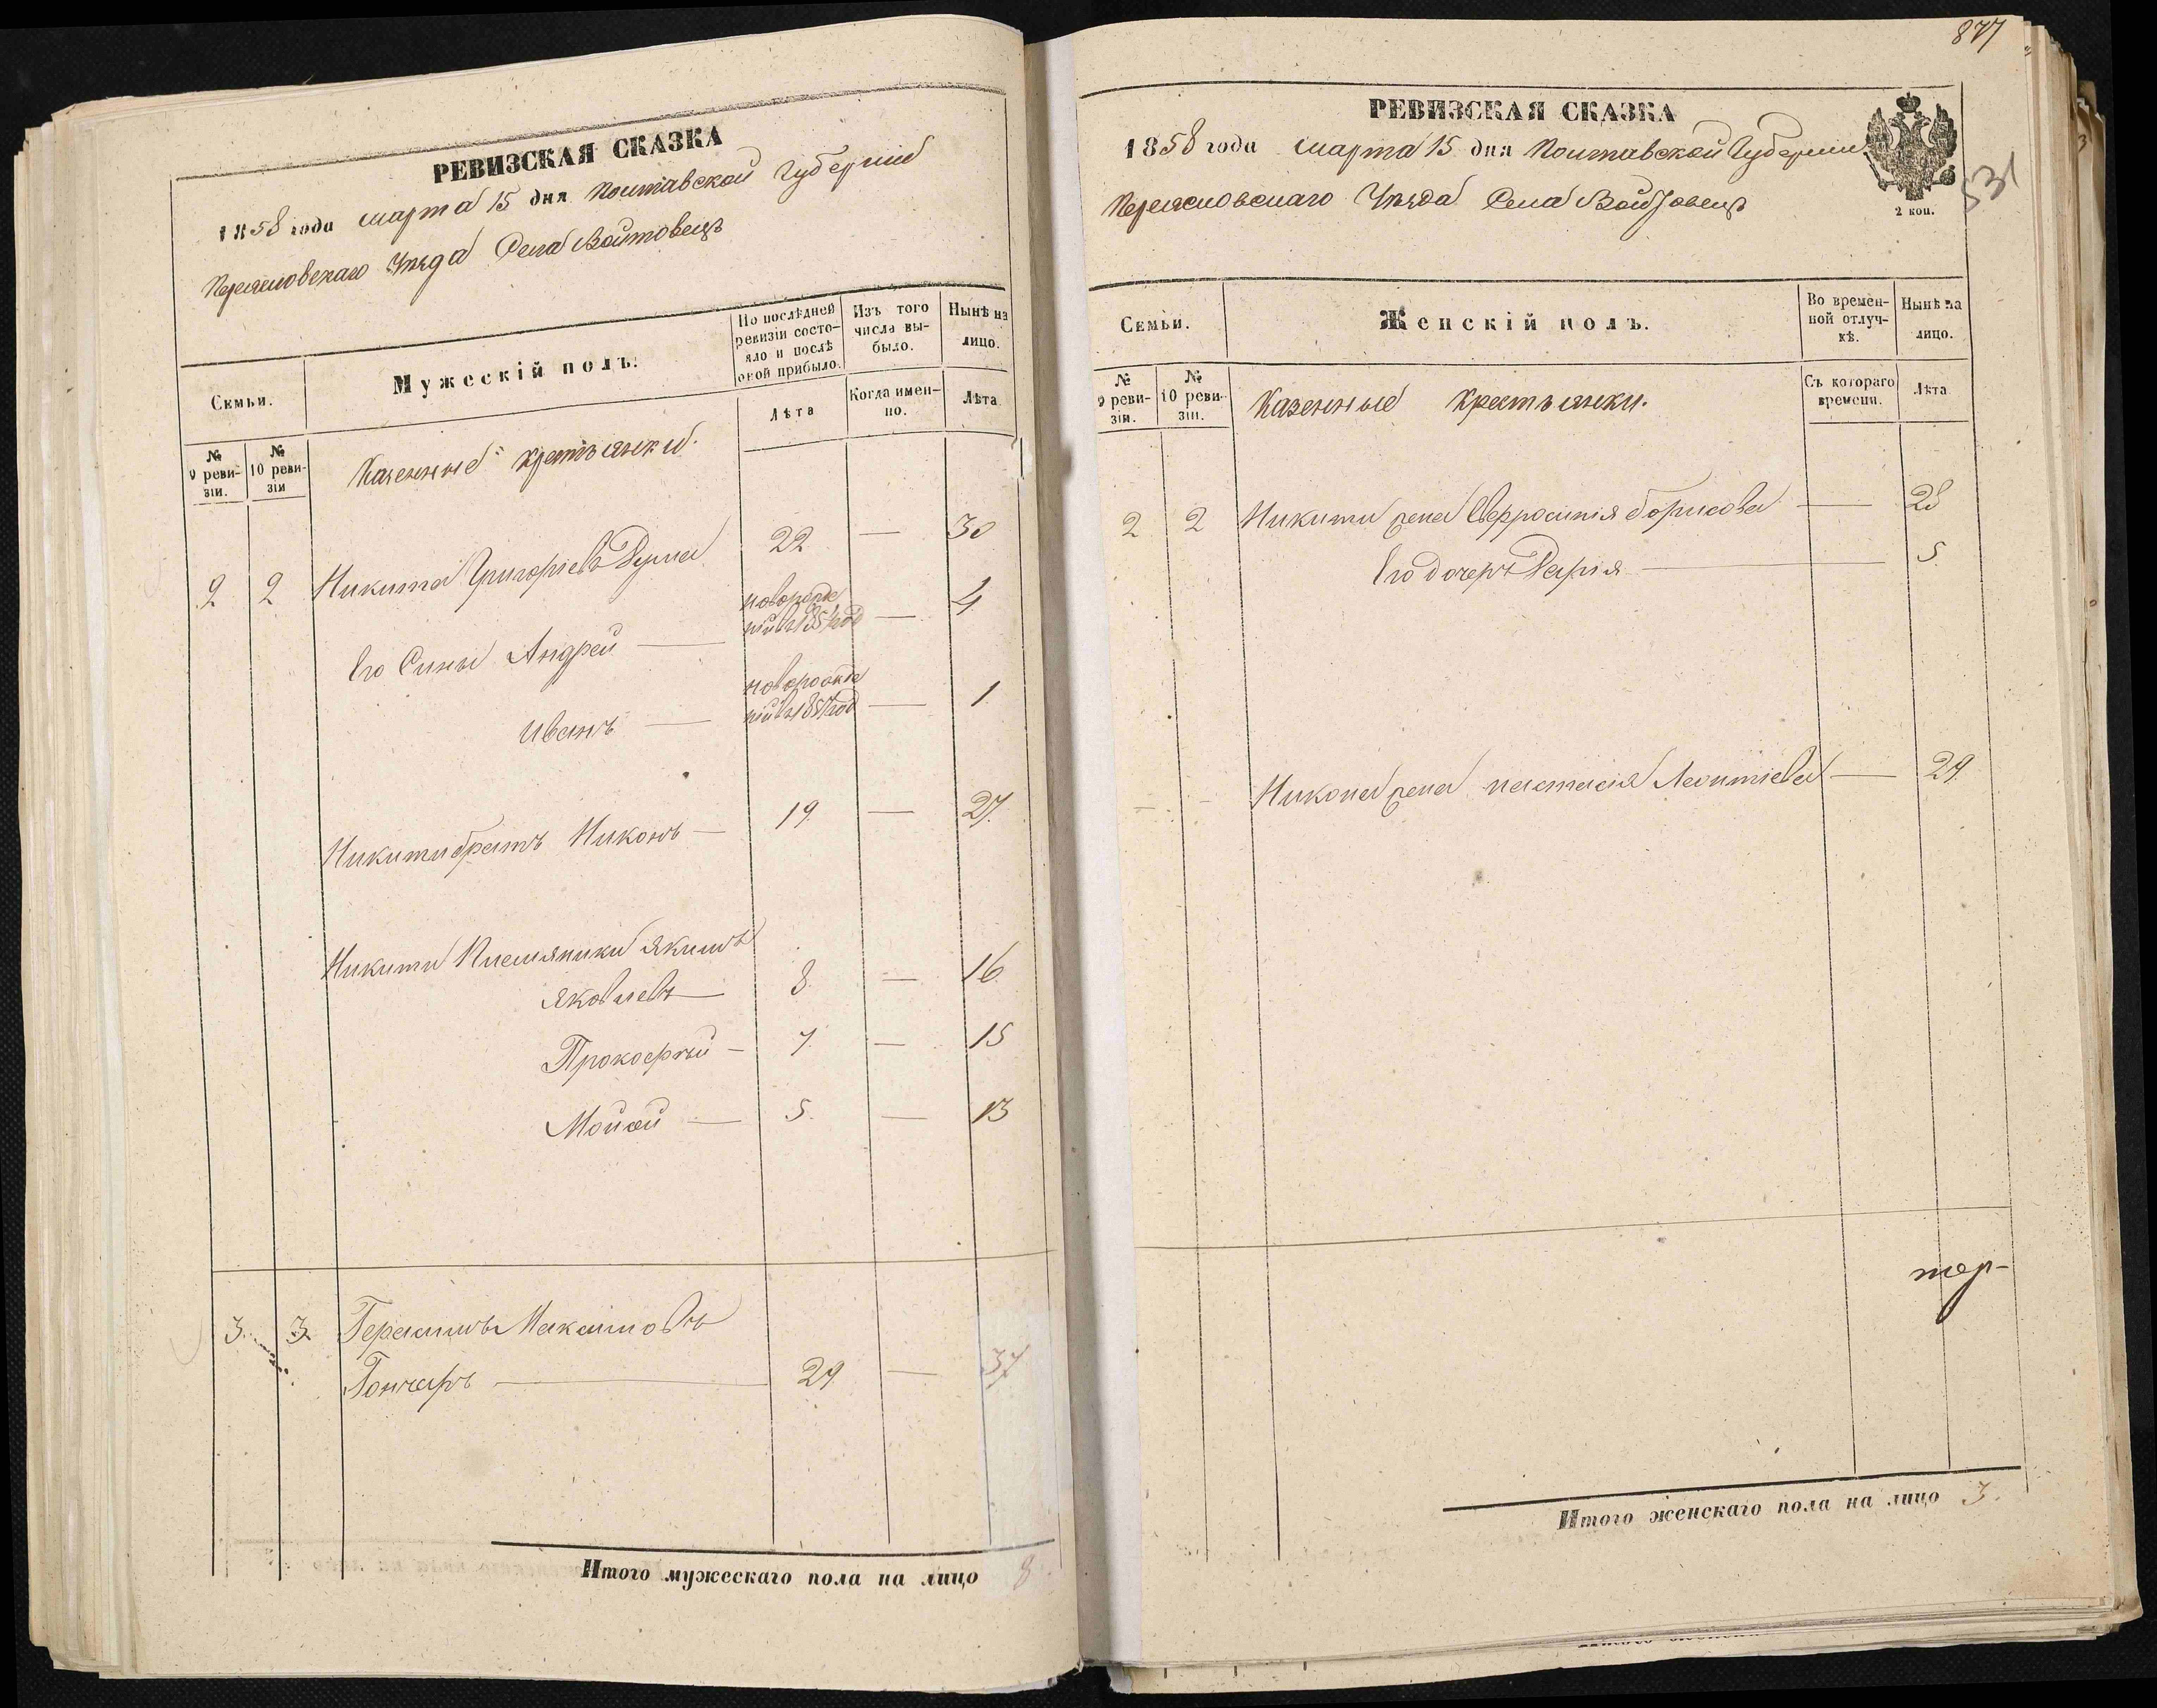 РЕВИЗСКАЯ СКАЗКА
1858 года марта 15 дня Полтавской Губернии
Переясловскаго Уѣзда Села Войтовецъ
Семьи.
Мужескій полъ.
По послѣдней ревизіи состояло и послѣ оной прибыло.
Изъ того числа выбыло.
Нынѣ на лицо.
№ 9 ревизіи.
№ 10 ревизіи
Казенные крестьянки.
Лѣта
Когда именно.
Лѣта
2 2 Никита Григоріевъ Дума 22 — 30
Его Сины Андрей — новорожде
ный въ 1854 год — 4
Иванъ — новорожде
ный въ 1857 год — 1
Никити братъ Никонъ — 19 — 27.
Никити Племяники Якимъ
Яковлевъ — 8. — 16
Прокофтий — 7. — 15
Мойсей — 5. — 13
3. 3. Герасимъ Максимовъ
Гончаръ — 29 — 37
Итого мужескаго пола на лицо 8.
877
РЕВИЗСКАЯ СКАЗКА
1858 года марта 15 дня Полтавской Губернии
Переясловскаго Уѣзда Села Войтовецъ
2 коп.
531
Семьи.
Женскій полъ.
Во временной отлучкѣ.
Нынѣ на лицо.
№ 9 ревизіи.
№ 10 ревизіи.
Казенные Крестьянки.
Съ котораго времени.
Лѣта
2 2 Никити жена Евфросинія Борисова — 28
Его дочеръ Дарія — 5
Никона жена настасія Леонтіева — 29.
Итого женскаго пола на лицо 3.